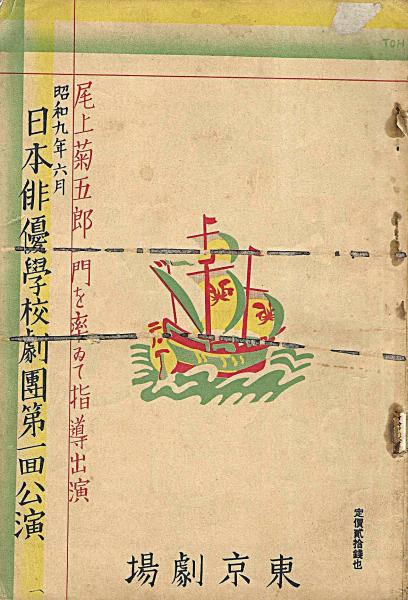 尾上菊五郎一門を率ゐて指導出演
昭和九年六月
日本俳優學校劇團第一回公演
定價貳拾錢也
東京劇場
TOH